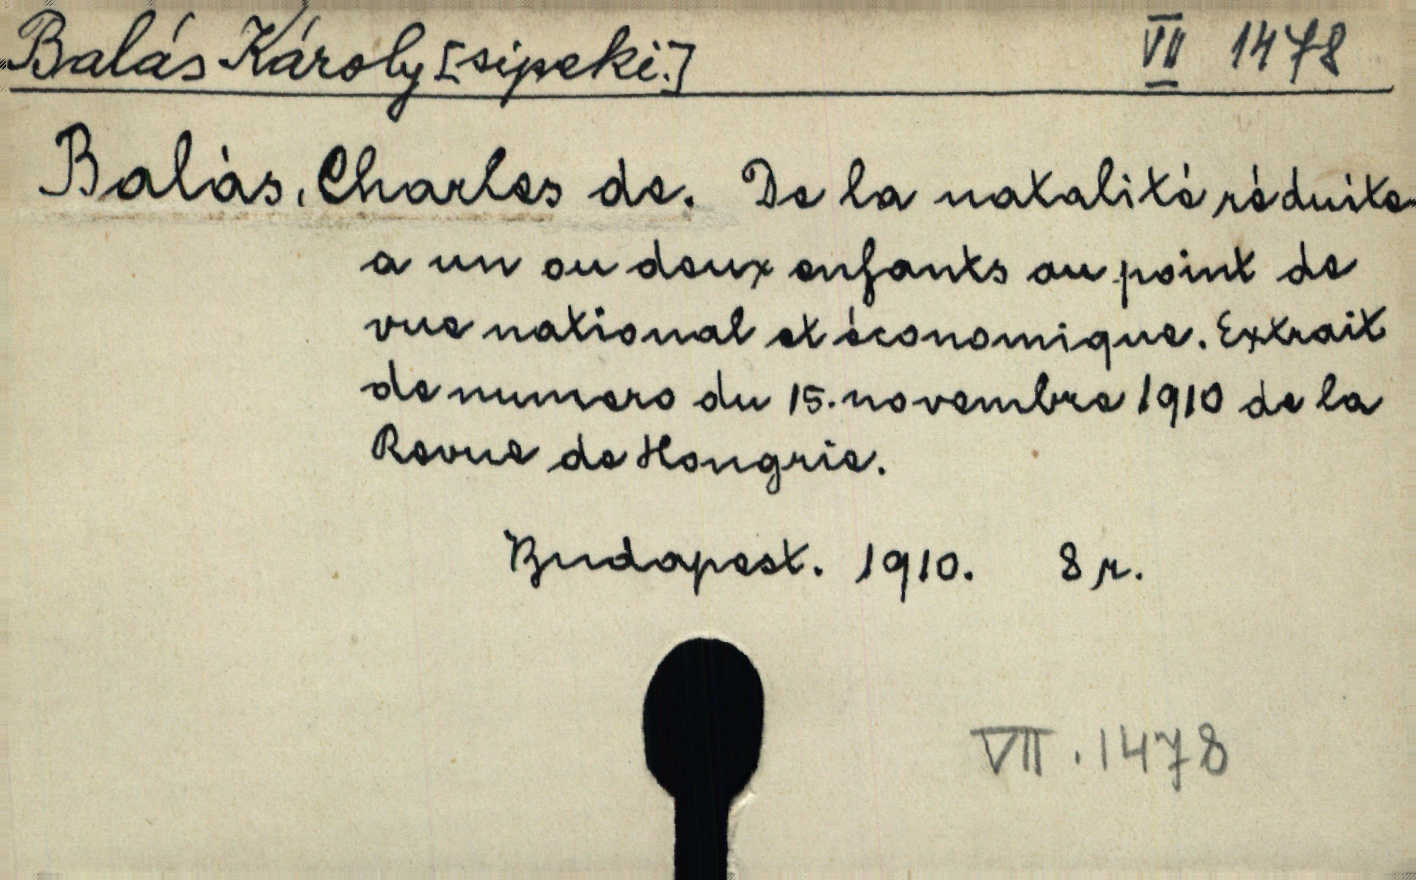 Balás Károly [sipeki.] VII 1478
Balás, Charles de. De la natalité réduite
a un ou deux enfants au point de
vue national et économique. Extrait
de numero du 15. novembre 1910 de la
Revue de Hongrie.
Budapest. 1910. 8 r.
VII. 1478